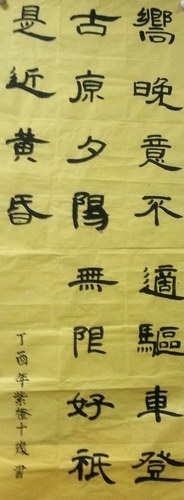 嚮晚意不適驅車登
古原夕陽無限好祇
是近黄昏
丁酉年紫十歲書